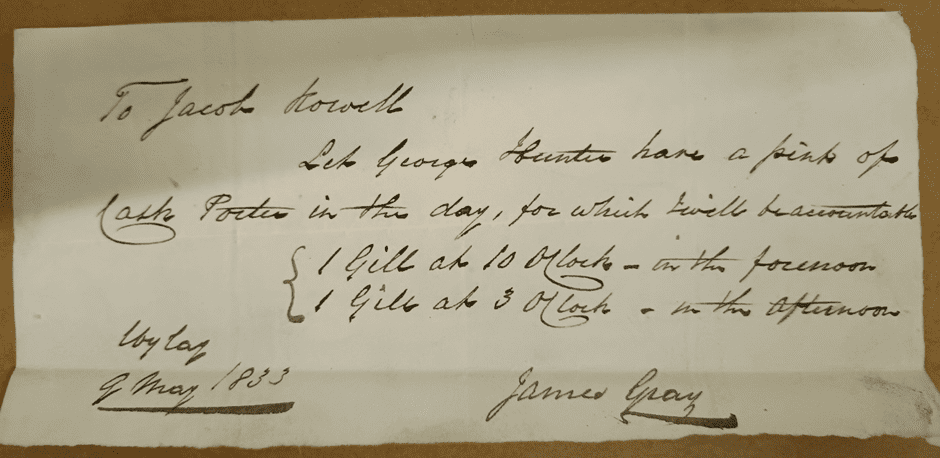 To Jacob Howell
Let George Hunter have a pint of
Cask Porter in the day, for which I will be accountable
1 Gill at 10 OClock - in the forenoon
1 Gill at 3 OClock - in the afternoon
9 May 1833
James Gray